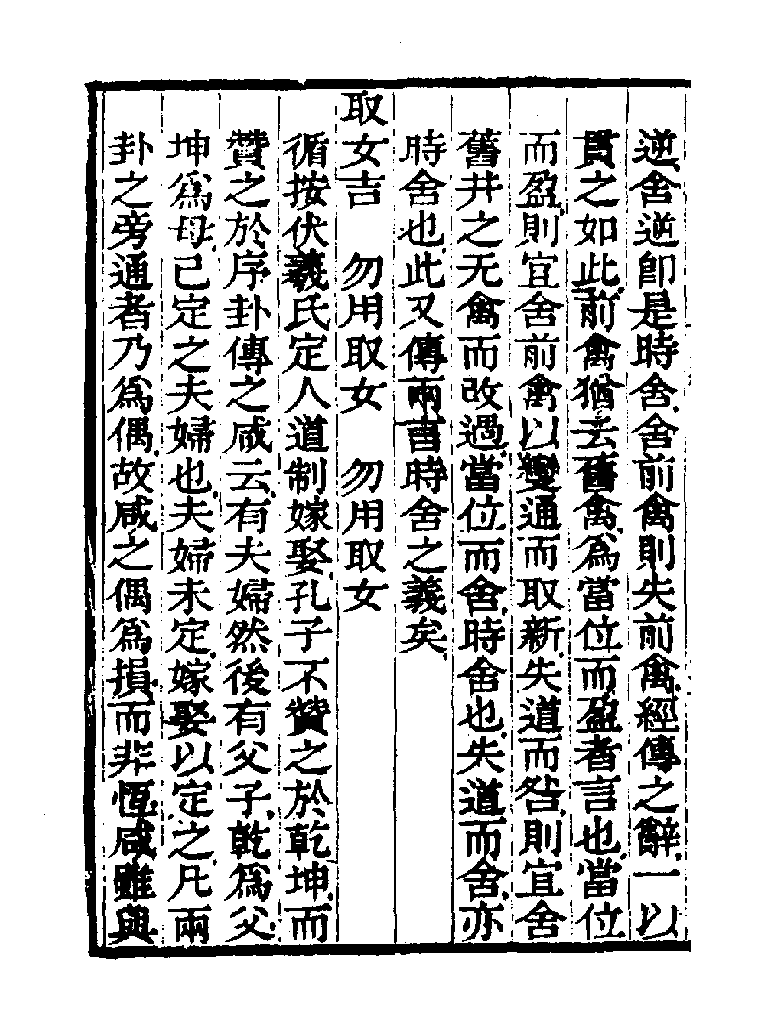 逆舍逆卽是時舍舍前禽則失前禽經傳之辭一以
貫之如此前禽猶云舊禽爲當位而盈者言也當位
而盈則宜舍前禽以變通而取新失道而咎則宜舍
舊井之无禽而改過當位而舍時舍也失道而舍亦
時舍也此又傳兩言時舍之義矣
取女吉　勿用取女　勿用取女
循按伏羲氏定人道制嫁娶孔子不贊之於乾坤而
贊之於序卦傳之咸云有夫婦然後有父子乾爲父
坤爲母已定之夫婦也夫婦未定嫁娶以定之凡兩
卦之旁通者乃爲偶故咸之偶爲損而非恆咸雖與